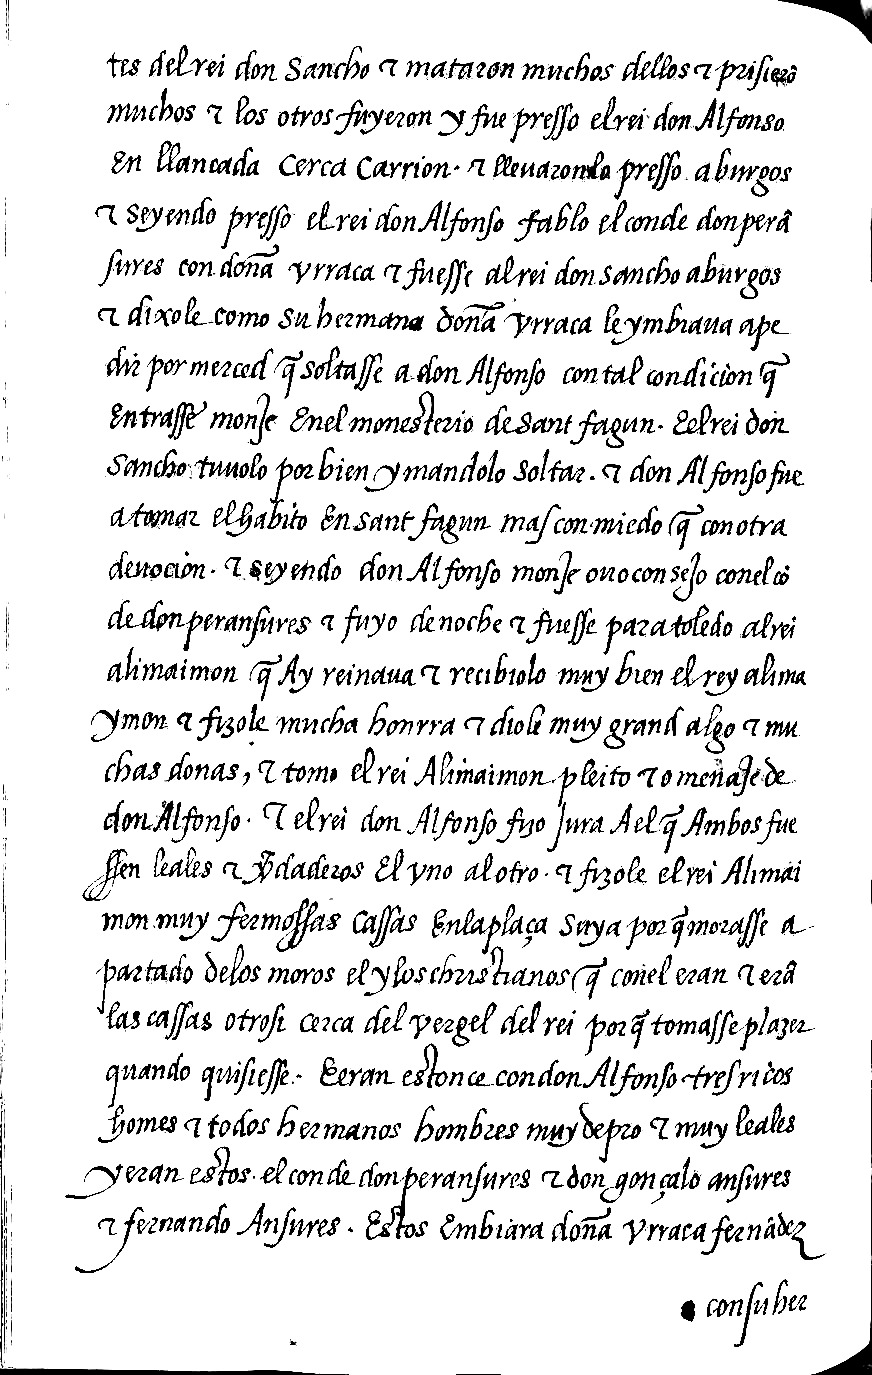 tes del rei don Sancho ⁊ mataron muchos dellos ⁊ prisierō
muchos ⁊ los otros fuyeron y fue presso el rei don Alfonso
En llantada Cerca Carrion. ⁊ lleuaronlo presso a burgos
⁊ seyendo presso el rei don Alfonso fablo el conde don perā
sures con doña vrraca ⁊ fuesse al rei don sancho a burgos
⁊ dixole como su hermana doña vrraca le ymbiaua a pe
dir por merced q̄ soltasse a don Alfonso con tal condicion q̄
Entrasse monje En el monesterio de Sant fagun. E el rei don
Sancho tuuolo por bien y mandolo soltar. ⁊ don Alfonso fue
a tomar el habito En sant fagun mas con miedo q̄ con otra
deuocion. ⁊ seyendo don Alfonso monje ouo consejo con el cō
de don peransures ⁊ fuyo de noche ⁊ fuesse para toledo al rei
alimaimon q̄ Ay reinaua ⁊ recibiolo muy bien el rey alima
ymon ⁊ fizole mucha honrra ⁊ diole muy grand algo ⁊ mu
chas donas, ⁊ tomo el rei Alimaimon pleito ⁊ omenaje de
don Alfonso. ⁊ el rei don Alfonso fizo jura A el q̄ Ambos fue
ssen leales ⁊ v̄daderos El vno al otro. ⁊ fizole el rei Alimai
mon muy fermossas Cassas En la plaça suya por q̄ morasse a
partado de los moros el y los christianos q̄ con el eran ⁊ erā
las cassas otrosi cerca del vergel del rei por q̄ tomasse plazer
quando quisiesse. E eran estonce con don Alfonso tres ricos
homes ⁊ todos hermanos hombres muy de pro ⁊ muy leales
y eran estos. el conde don peransures ⁊ don gonçalo ansures
⁊ fernando Ansures. Estos Embiara doña vrraca fernādez
con su her